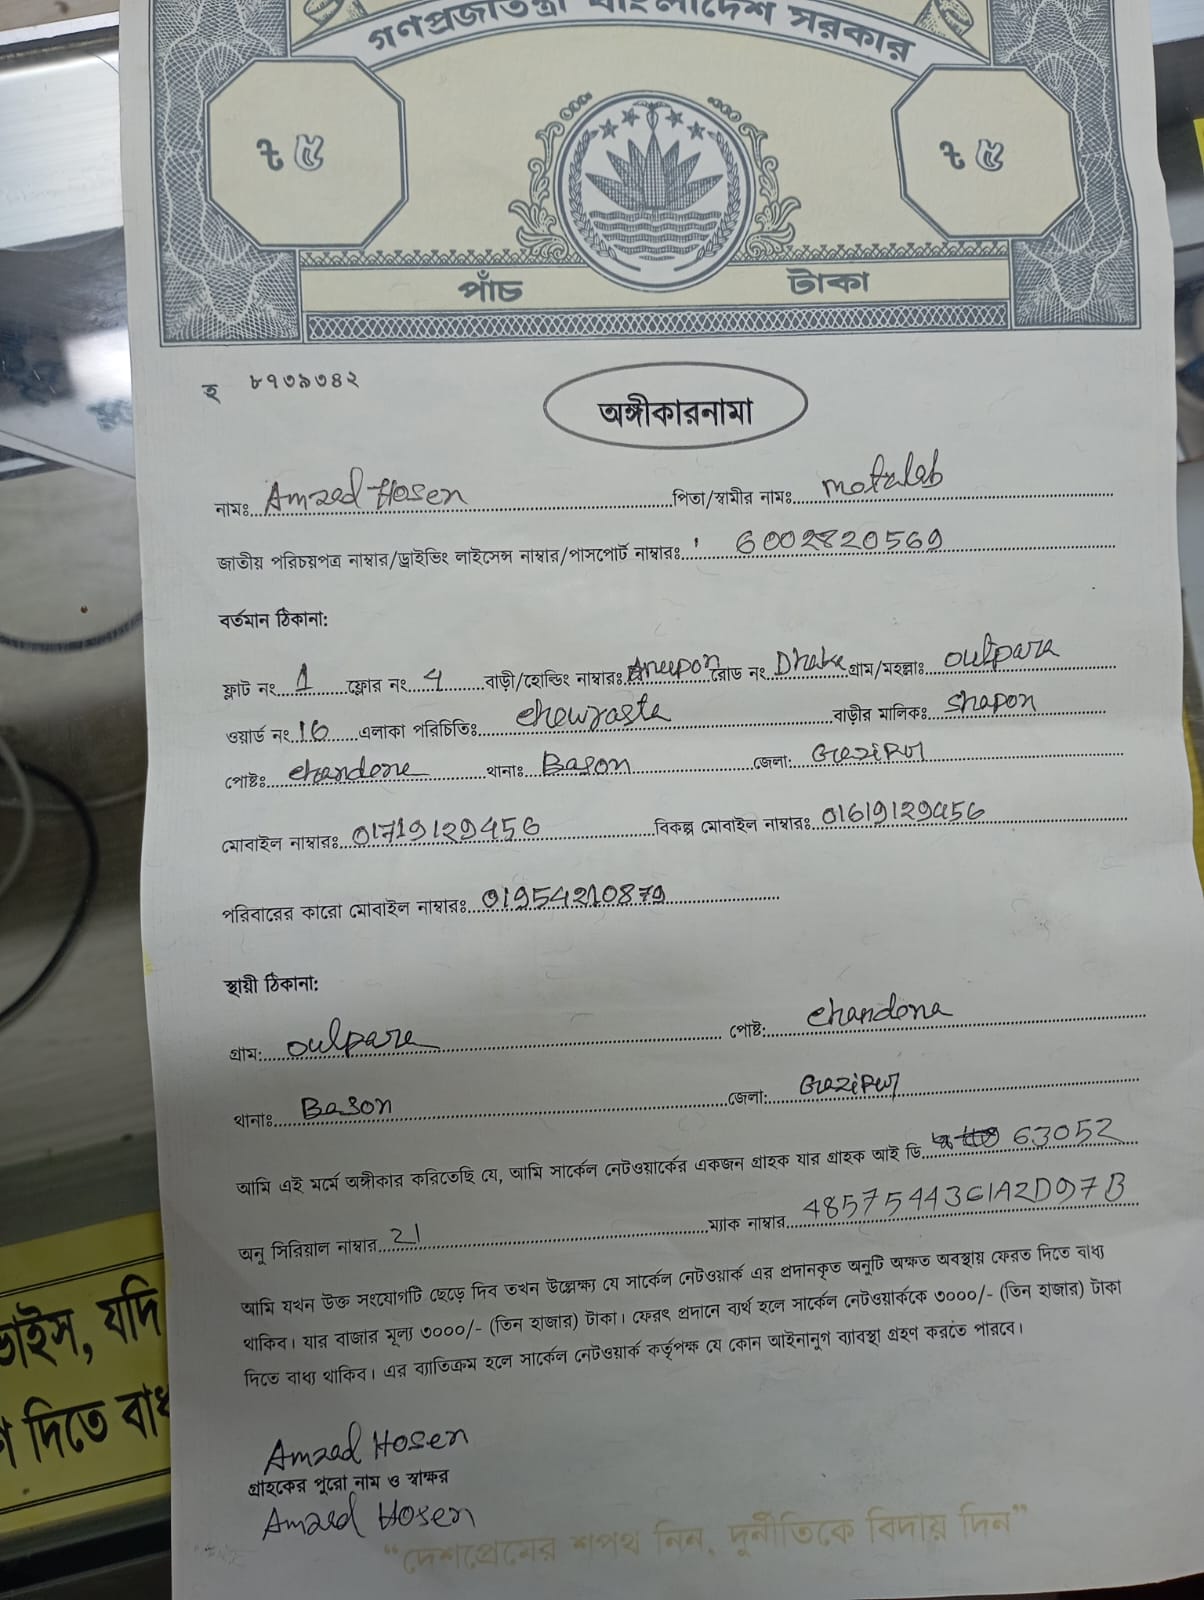 গণপ্রজাতন্ত্রী বাংলাদেশ সরকার
৳ ৫ ৳ ৫
পাঁচ টাকা
হ ৮৭৩৯৩৪২
অঙ্গীকারনামা
নামঃ Amzad Hosen পিতা/স্বামীর নামঃ motaleb
জাতীয় পরিচয়পত্র নাম্বার/ড্রাইভিং লাইসেন্স নাম্বার/পাসপোর্ট নাম্বারঃ 6002820569
বর্তমান ঠিকানা:
ফ্লাট নং 1 ফ্লোর নং 4 বাড়ী/হোল্ডিং নাম্বারঃ রোড নং Dhaka গ্রাম/মহল্লাঃ oulpara
ওয়ার্ড নং 16 এলাকা পরিচিতিঃ chowrasta বাড়ীর মালিকঃ shapon
পোষ্টঃ chandona থানাঃ Bason জেলা: Gazipur
মোবাইল নাম্বারঃ 01719129456 বিকল্প মোবাইল নাম্বারঃ 01619129456
পরিবারের কারো মোবাইল নাম্বারঃ 01954210879
স্থায়ী ঠিকানা:
গ্রাম: oulpara পোষ্ট: chandona
থানাঃ Bason জেলা: Gazipur
আমি এই মর্মে অঙ্গীকার করিতেছি যে, আমি সার্কেল নেটওয়ার্কের একজন গ্রাহক যার গ্রাহক আই ডি 63052
অনু সিরিয়াল নাম্বার 21 ম্যাক নাম্বার 4857544361A2D97B
আমি যখন উক্ত সংযোগটি ছেড়ে দিব তখন উল্লেক্ষ্য যে সার্কেল নেটওয়ার্ক এর প্রদানকৃত অনুটি অক্ষত অবস্থায় ফেরত দিতে বাধ্য
থাকিব। যার বাজার মূল্য ৩০০০/- (তিন হাজার) টাকা। ফেরৎ প্রদানে ব্যর্থ হলে সার্কেল নেটওয়ার্ককে ৩০০০/- (তিন হাজার) টাকা
দিতে বাধ্য থাকিব। এর ব্যাতিক্রম হলে সার্কেল নেটওয়ার্ক কর্তৃপক্ষ যে কোন আইনানুগ ব্যাবস্থা গ্রহণ করতে পারবে।
Amzad Hosen
গ্রাহকের পুরো নাম ও স্বাক্ষর
Amzad Hosen
"দেশপ্রেমের শপথ নিন, দুর্নীতিকে বিদায় দিন"
ভাইস, যদি
দিতে বাধ